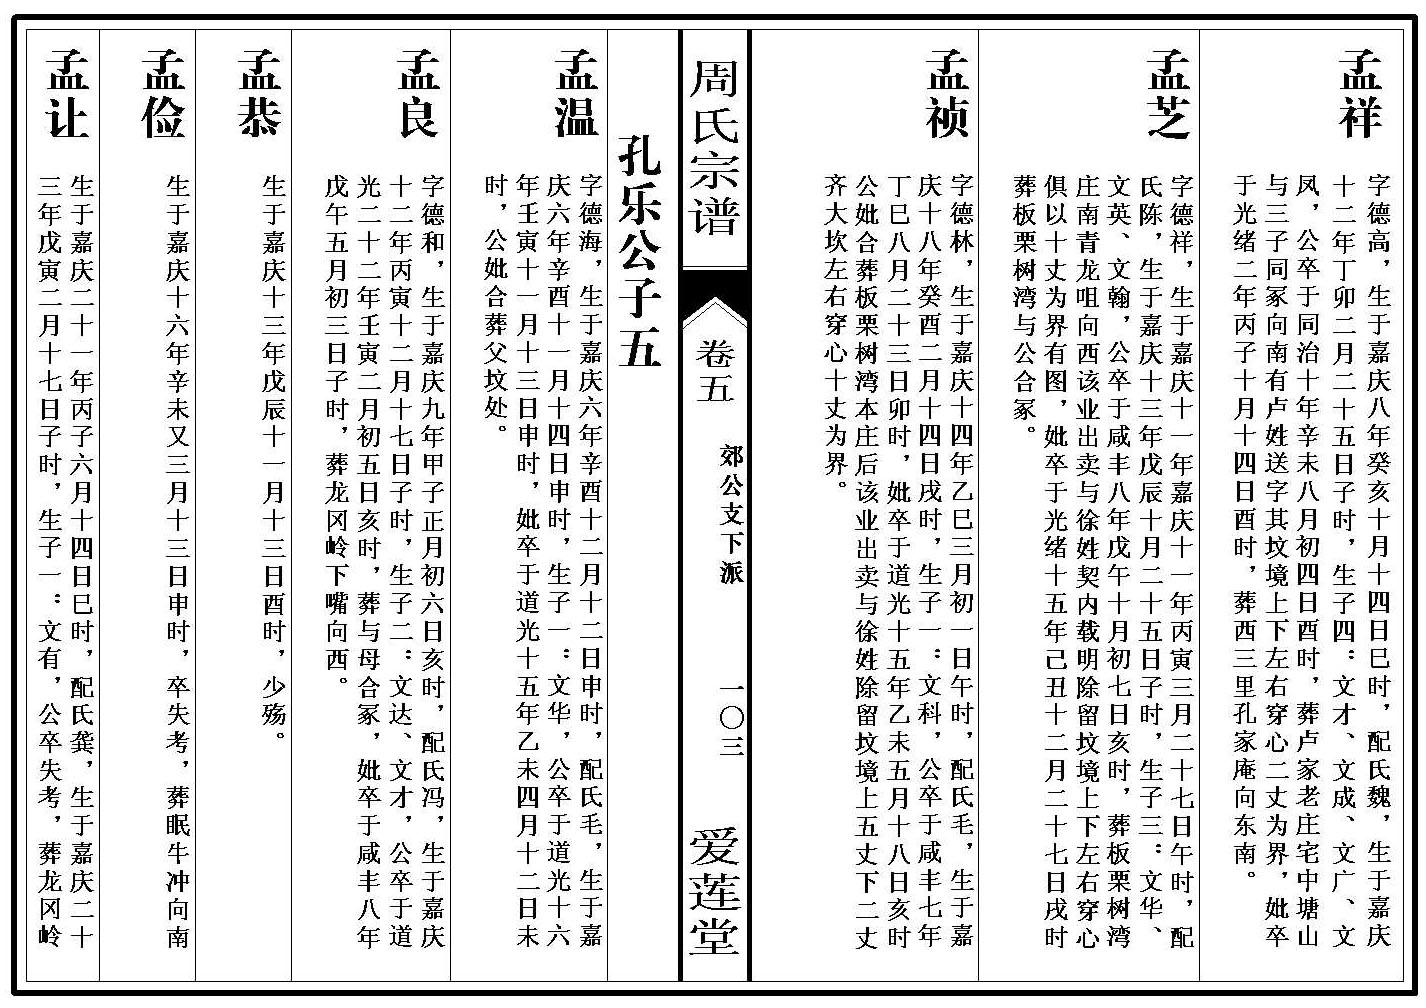 孟祥
字德高，生于嘉庆八年癸亥十月十四日巳时，配氏魏，生于嘉庆
十二年丁卯二月二十五日子时，生子四：文才、文成、文广、文
凤，公卒于同治十年辛未八月初四日酉时，葬卢家老庄宅中塘山
与三子同冢向南有卢姓送字其坟境上下左右穿心二丈为界，妣卒
于光绪二年丙子十月十四日酉时，葬西三里孔家庵向东南。
孟芝
字德祥，生于嘉庆十一年嘉庆十一年丙寅三月二十七日午时，配
氏陈，生于嘉庆十三年戊辰十月二十五日子时，生子三：文华、
文英、文翰，公卒于咸丰八年戊午十月初七日亥时，葬板栗树湾
庄南青龙咀向西该业出卖与徐姓契内载明除留坟境上下左右穿心
俱以十丈为界有图，妣卒于光绪十五年己丑十二月二十七日戌时
葬板栗树湾与公合冢。
孟祯
字德林，生于嘉庆十四年乙巳三月初一日午时，配氏毛，生于嘉
庆十八年癸酉二月十四日戌时，生子一：文科，公卒于咸丰七年
丁巳八月二十三日卯时，妣卒于道光十五年乙未五月十八日亥时
公妣合葬板栗树湾本庄后该业出卖与徐姓除留坟境上五丈下二丈
齐大坎左右穿心十丈为界。
周氏宗谱
卷五
郊公支下派
一〇三
爱莲堂
孔乐公子五
孟温
字德海，生于嘉庆六年辛酉十二月十二日申时，配氏毛，生于嘉
庆六年辛酉十一月十四日申时，生子一：文华，公卒于道光十六
年壬寅十一月十三日申时，妣卒于道光十五年乙未四月十二日未
时，公妣合葬父坟处。
孟良
字德和，生于嘉庆九年甲子正月初六日亥时，配氏冯，生于嘉庆
十二年丙寅十二月十七日子时，生子二：文达、文才，公卒于道
光二十二年壬寅二月初五日亥时，葬与母合冢，妣卒于咸丰八年
戊午五月初三日子时，葬龙冈岭下嘴向西。
孟恭
生于嘉庆十三年戊辰十一月十三日酉时，少殇。
孟俭
生于嘉庆十六年辛未又三月十三日申时，卒失考，葬眠牛冲向南
孟让
生于嘉庆二十一年丙子六月十四日巳时，配氏龚，生于嘉庆二十
三年戊寅二月十七日子时，生子一：文有，公卒失考，葬龙冈岭